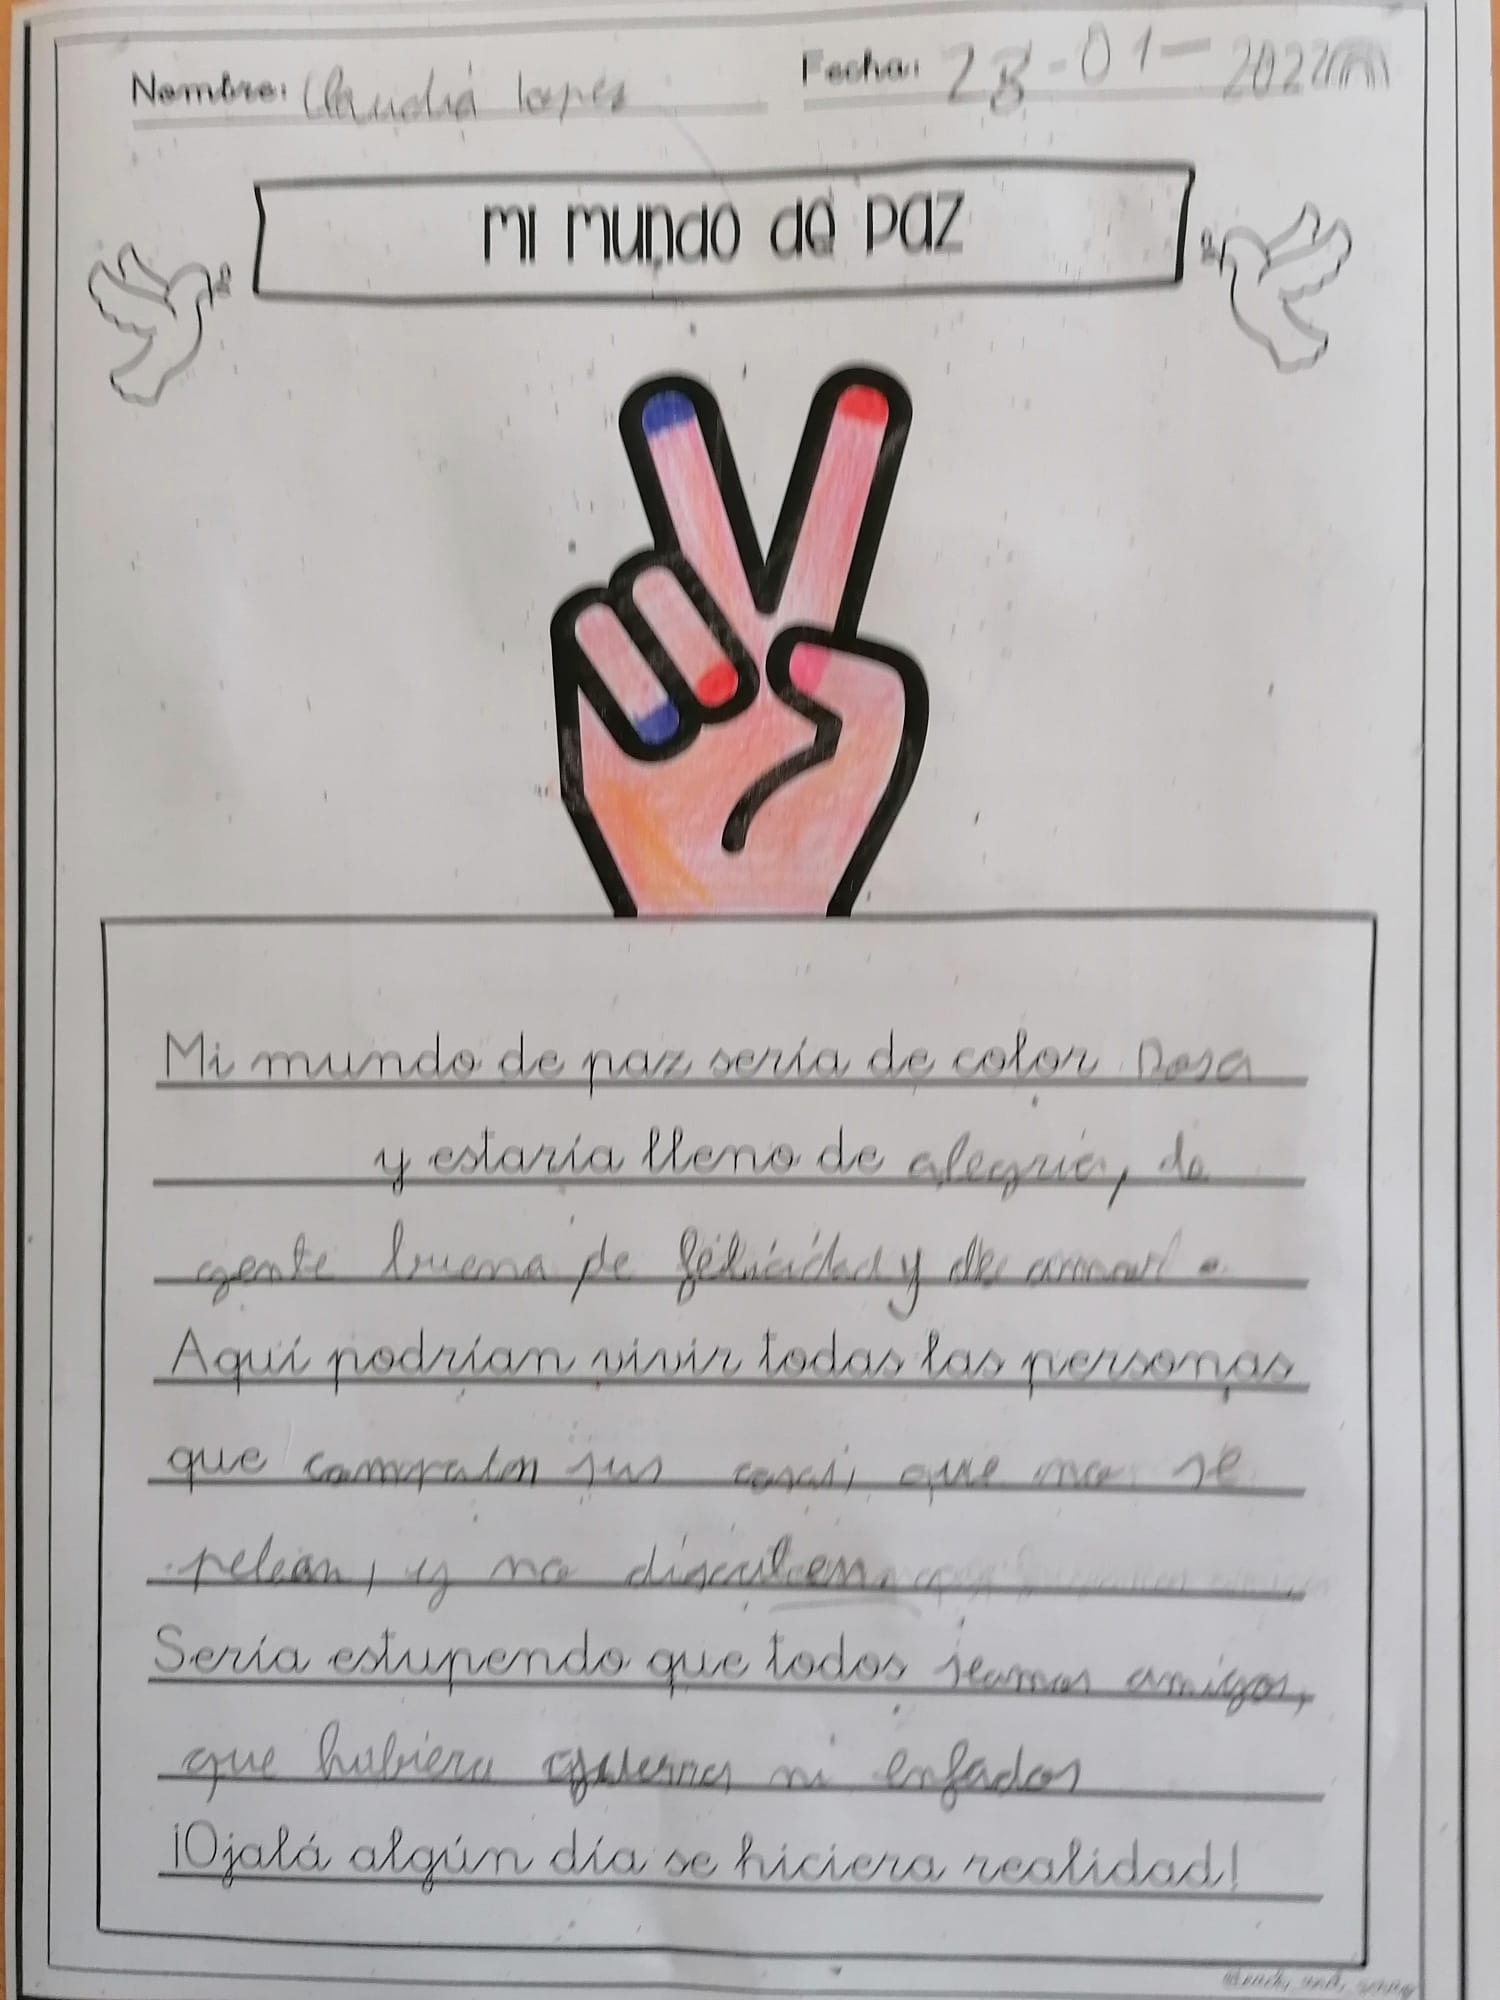 Nombre: Claudia lopes Fecha: 28-01-2022
mi mundo de paz
Mi mundo de paz sería de color rosa
y estaría lleno de alegria, de
gente buena de felicidad y de amor.
Aquí podrían vivir todas las personas
que compraten sus cosas, que no se
pelean, y no discuten.
Sería estupendo que todos seamos amigos,
que hubiera guerras ni enfados
¡Ojalá algún día se hiciera realidad!